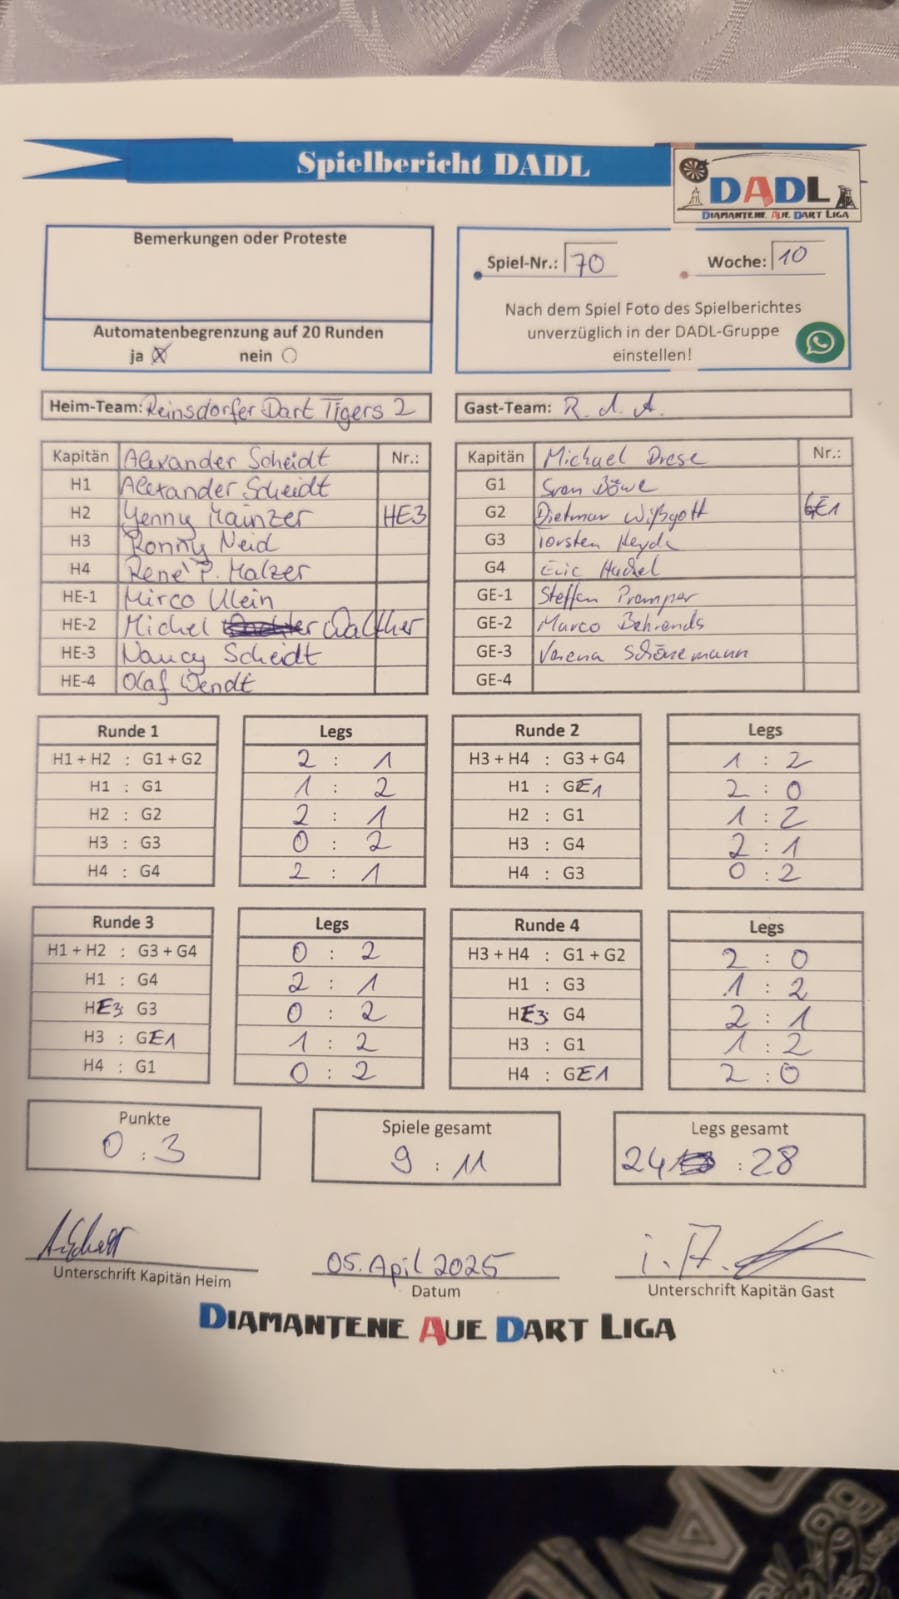 Spielbericht DADL
DADL
DIAMANTENE AUE DART LIGA
Bemerkungen oder Proteste
Automatenbegrenzung auf 20 Runden
ja nein
Spiel-Nr.: 70 Woche: 10
Nach dem Spiel Foto des Spielberichtes
unverzüglich in der DADL-Gruppe
einstellen!
Heim-Team: Reinsdorfer Dart Tigers 2
Gast-Team: R. d. A.
Kapitän Alexander Scheidt Nr.:
H1 Alexander Scheidt
H2 Yenny Mainzer HE3
H3 Ronny Neid
H4 René P. Malzer
HE-1 Mirco Ulein
HE-2 Michel Walther
HE-3 Nancy Scheidt
HE-4 Olaf Wendt
Kapitän Michael Drese Nr.:
G1 Sven Böwe
G2 Dietmar Wißgott GE1
G3 Torsten Heyde
G4 Eric Hackel
GE-1 Steffen Promper
GE-2 Marco Behrends
GE-3 Verena Schönemann
GE-4
Runde 1 Legs
H1 + H2 : G1 + G2 2 : 1
H1 : G1 1 : 2
H2 : G2 2 : 1
H3 : G3 0 : 2
H4 : G4 2 : 1
Runde 2 Legs
H3 + H4 : G3 + G4 1 : 2
H1 : GE1 2 : 0
H2 : G1 1 : 2
H3 : G4 2 : 1
H4 : G3 0 : 2
Runde 3 Legs
H1 + H2 : G3 + G4 0 : 2
H1 : G4 2 : 1
HE3 : G3 0 : 2
H3 : GE1 1 : 2
H4 : G1 0 : 2
Runde 4 Legs
H3 + H4 : G1 + G2 2 : 0
H1 : G3 1 : 2
HE3 : G4 2 : 1
H3 : G1 1 : 2
H4 : GE1 2 : 0
Punkte
0 : 3
Spiele gesamt
9 : 11
Legs gesamt
24 : 28
Unterschrift Kapitän Heim
05. April 2025
Datum
i. A.
Unterschrift Kapitän Gast
DIAMANTENE AUE DART LIGA